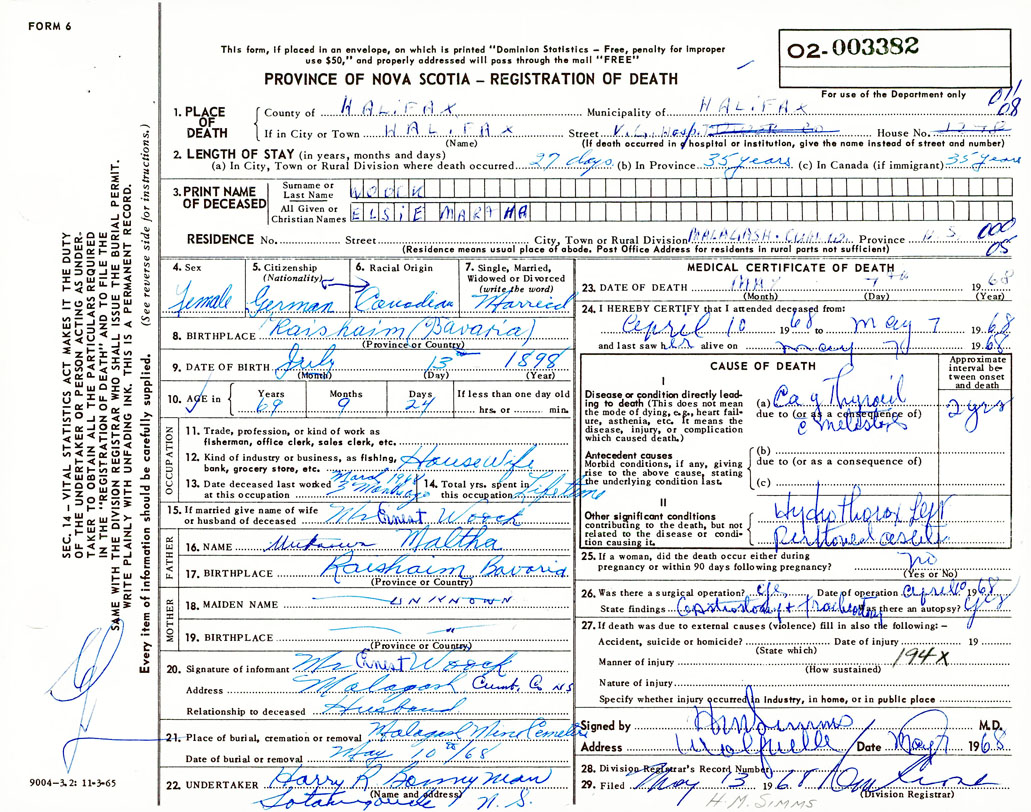 FORM 6
This form, if placed in an envelope, on which is printed "Dominion Statistics – Free, penalty for improper
use $50," and properly addressed will pass through the mail "FREE"
PROVINCE OF NOVA SCOTIA – REGISTRATION OF DEATH
02-003382
For use of the Department only
01/
08
1. PLACE OF DEATH
County of HALIFAX Municipality of HALIFAX
If in City or Town HALIFAX Street V.G. Hosp. House No.
(Name) (If death occurred in hospital or institution, give the name instead of street and number)
2. LENGTH OF STAY (in years, months and days)
(a) In City, Town or Rural Division where death occurred 27 days (b) In Province 35 years (c) In Canada (if immigrant) 35 years
3. PRINT NAME OF DECEASED
Surname or Last Name WOOCK
All Given or Christian Names ELSIE MARTHA
RESIDENCE No. Street City, Town or Rural Division MALAGASH. Province N.S. 000
(Residence means usual place of abode. Post Office Address for residents in rural parts not sufficient) 05
4. Sex Female
5. Citizenship (Nationality) German
6. Racial Origin Canadian
7. Single, Married, Widowed or Divorced (write the word) Married
8. BIRTHPLACE Raishaim (Bavaria)
(Province or Country)
9. DATE OF BIRTH July 13 1898
(Month) (Day) (Year)
10. AGE in Years 69 Months 9 Days 24 If less than one day old hrs. or min.
OCCUPATION
11. Trade, profession, or kind of work as fisherman, office clerk, sales clerk, etc.
12. Kind of industry or business, as fishing, bank, grocery store, etc. HouseWife
13. Date deceased last worked at this occupation
14. Total yrs. spent in this occupation Lifetime
15. If married give name of wife or husband of deceased Mr Ernest Woock
FATHER
16. NAME Unknown Maltha
17. BIRTHPLACE Raishaim Bavaria
(Province or Country)
MOTHER
18. MAIDEN NAME UNKNOWN
19. BIRTHPLACE
(Province or Country)
20. Signature of informant Mr Ernest Woock
Address Malagash Cumb. Co NS
Relationship to deceased Husband
21. Place of burial, cremation or removal Malagash Mine Cemetery
Date of burial or removal May 10th/68
22. UNDERTAKER Harry R Bonnyman
(Name and address)
Tatamagouche N.S.
MEDICAL CERTIFICATE OF DEATH
23. DATE OF DEATH MAY 7th 1968
(Month) (Day) (Year)
24. I HEREBY CERTIFY that I attended deceased from:
April 10 1968 to May 7 1968
and last saw her alive on May 7 1968
CAUSE OF DEATH
Approximate interval between onset and death
I
Disease or condition directly leading to death (This does not mean the mode of dying, e.g., heart failure, asthenia, etc. It means the disease, injury, or complication which caused death.)
(a) Ca of Thyroid 2 yrs
due to (or as a consequence of)
Antecedent causes
Morbid conditions, if any, giving rise to the above cause, stating the underlying condition last.
(b)
due to (or as a consequence of)
(c)
II
Other significant conditions contributing to the death, but not related to the disease or condition causing it.
Hydrothorax Left
25. If a woman, did the death occur either during pregnancy or within 90 days following pregnancy? no
(Yes or No)
26. Was there a surgical operation? yes Date of operation April 10 1968
State findings Was there an autopsy? Yes
27. If death was due to external causes (violence) fill in also the following: –
Accident, suicide or homicide? Date of injury 19
(State which)
Manner of injury 194X
(How sustained)
Nature of injury
Specify whether injury occurred in Industry, in home, or in public place
Signed by H M Simms M.D.
Address Wolfville Date May 7 1968
28. Division Registrar's Record Number
29. Filed May 1968
(Division Registrar)
H.M. SIMMS
SEC. 14 – VITAL STATISTICS ACT MAKES IT THE DUTY
OF THE UNDERTAKER OR PERSON ACTING AS UNDER-
TAKER TO OBTAIN ALL THE PARTICULARS REQUIRED
IN THE "REGISTRATION OF DEATH" AND TO FILE THE
SAME WITH THE DIVISION REGISTRAR WHO SHALL ISSUE THE BURIAL PERMIT.
WRITE PLAINLY WITH UNFADING INK. THIS IS A PERMANENT RECORD.
Every item of information should be carefully supplied. (See reverse side for instructions.)
9004–3.2: 11-3-65